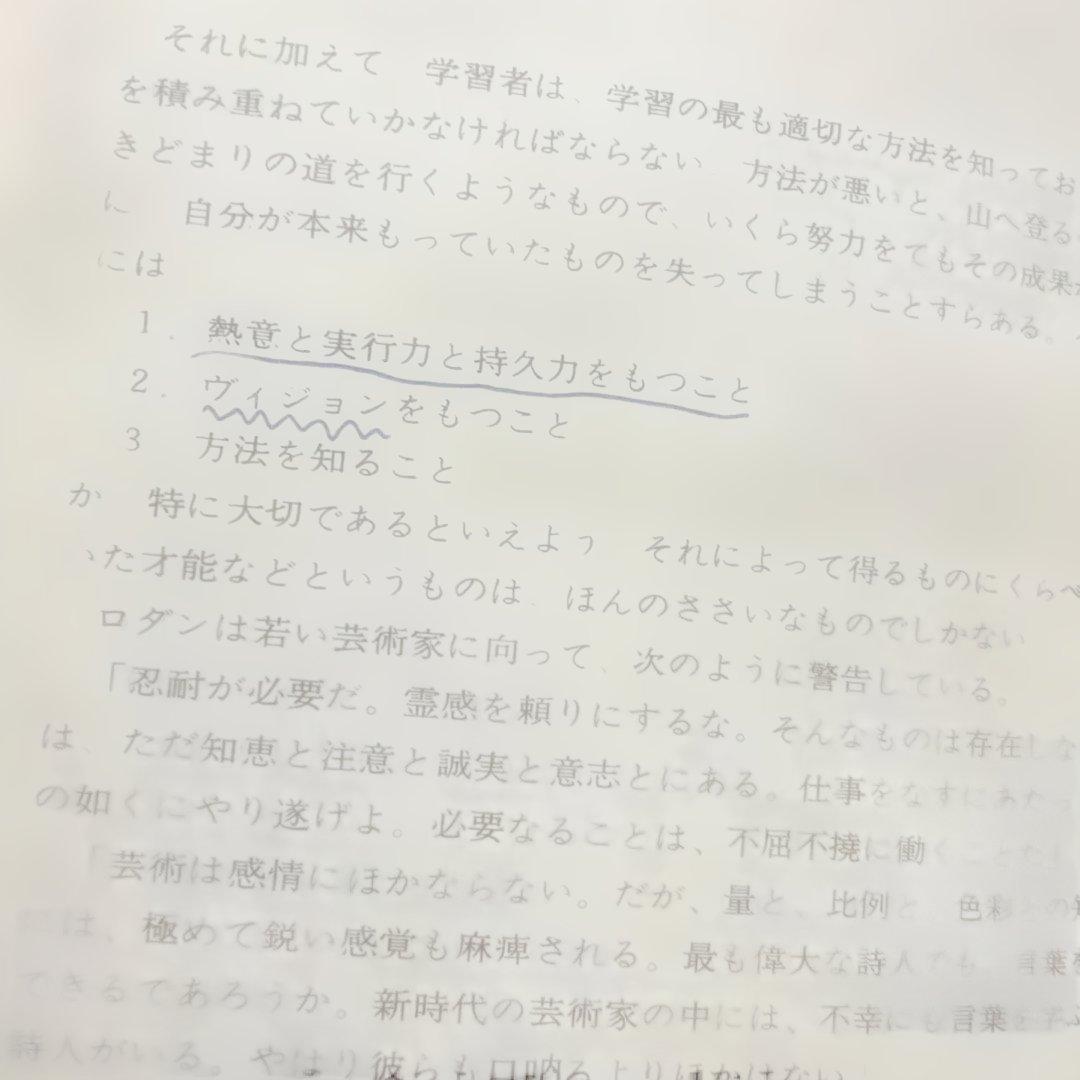 それに加えて 学習者は、学習の最も適切な方法を知ってお
を積み重ねていかなければならない 方法が悪いと、山へ登る
きどまりの道を行くようなもので、いくら努力をてもその成果が
に 自分が本来もっていたものを失ってしまうことすらある。
には
1. 熱意と実行力と持久力をもつこと
2. ヴィジョンをもつこと
3 方法を知ること
か 特に大切であるといえよう それによって得るものにくらべ
った才能などというものは、ほんのささいなものでしかない
ロダンは若い芸術家に向って、次のように警告している。
「忍耐が必要だ。霊感を頼りにするな。そんなものは存在しな
は、ただ知恵と注意と誠実と意志とにある。仕事をなすにあたっ
の如くにやり遂げよ。必要なることは、不屈不撓に働くこと
「芸術は感情にほかならない。だが、量と、比例と、色彩との知
は、極めて鋭い感覚も麻痺される。最も偉大な詩人でも 言葉を
できるてあろうか。新時代の芸術家の中には、不幸にも言葉を学ぶ
詩人がいる。やはり彼らも口吶るよりほかはない